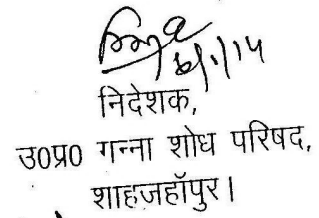 निदेशक,
उ०प्र० गन्ना शोध परिषद,
शाहजहाँपुर।